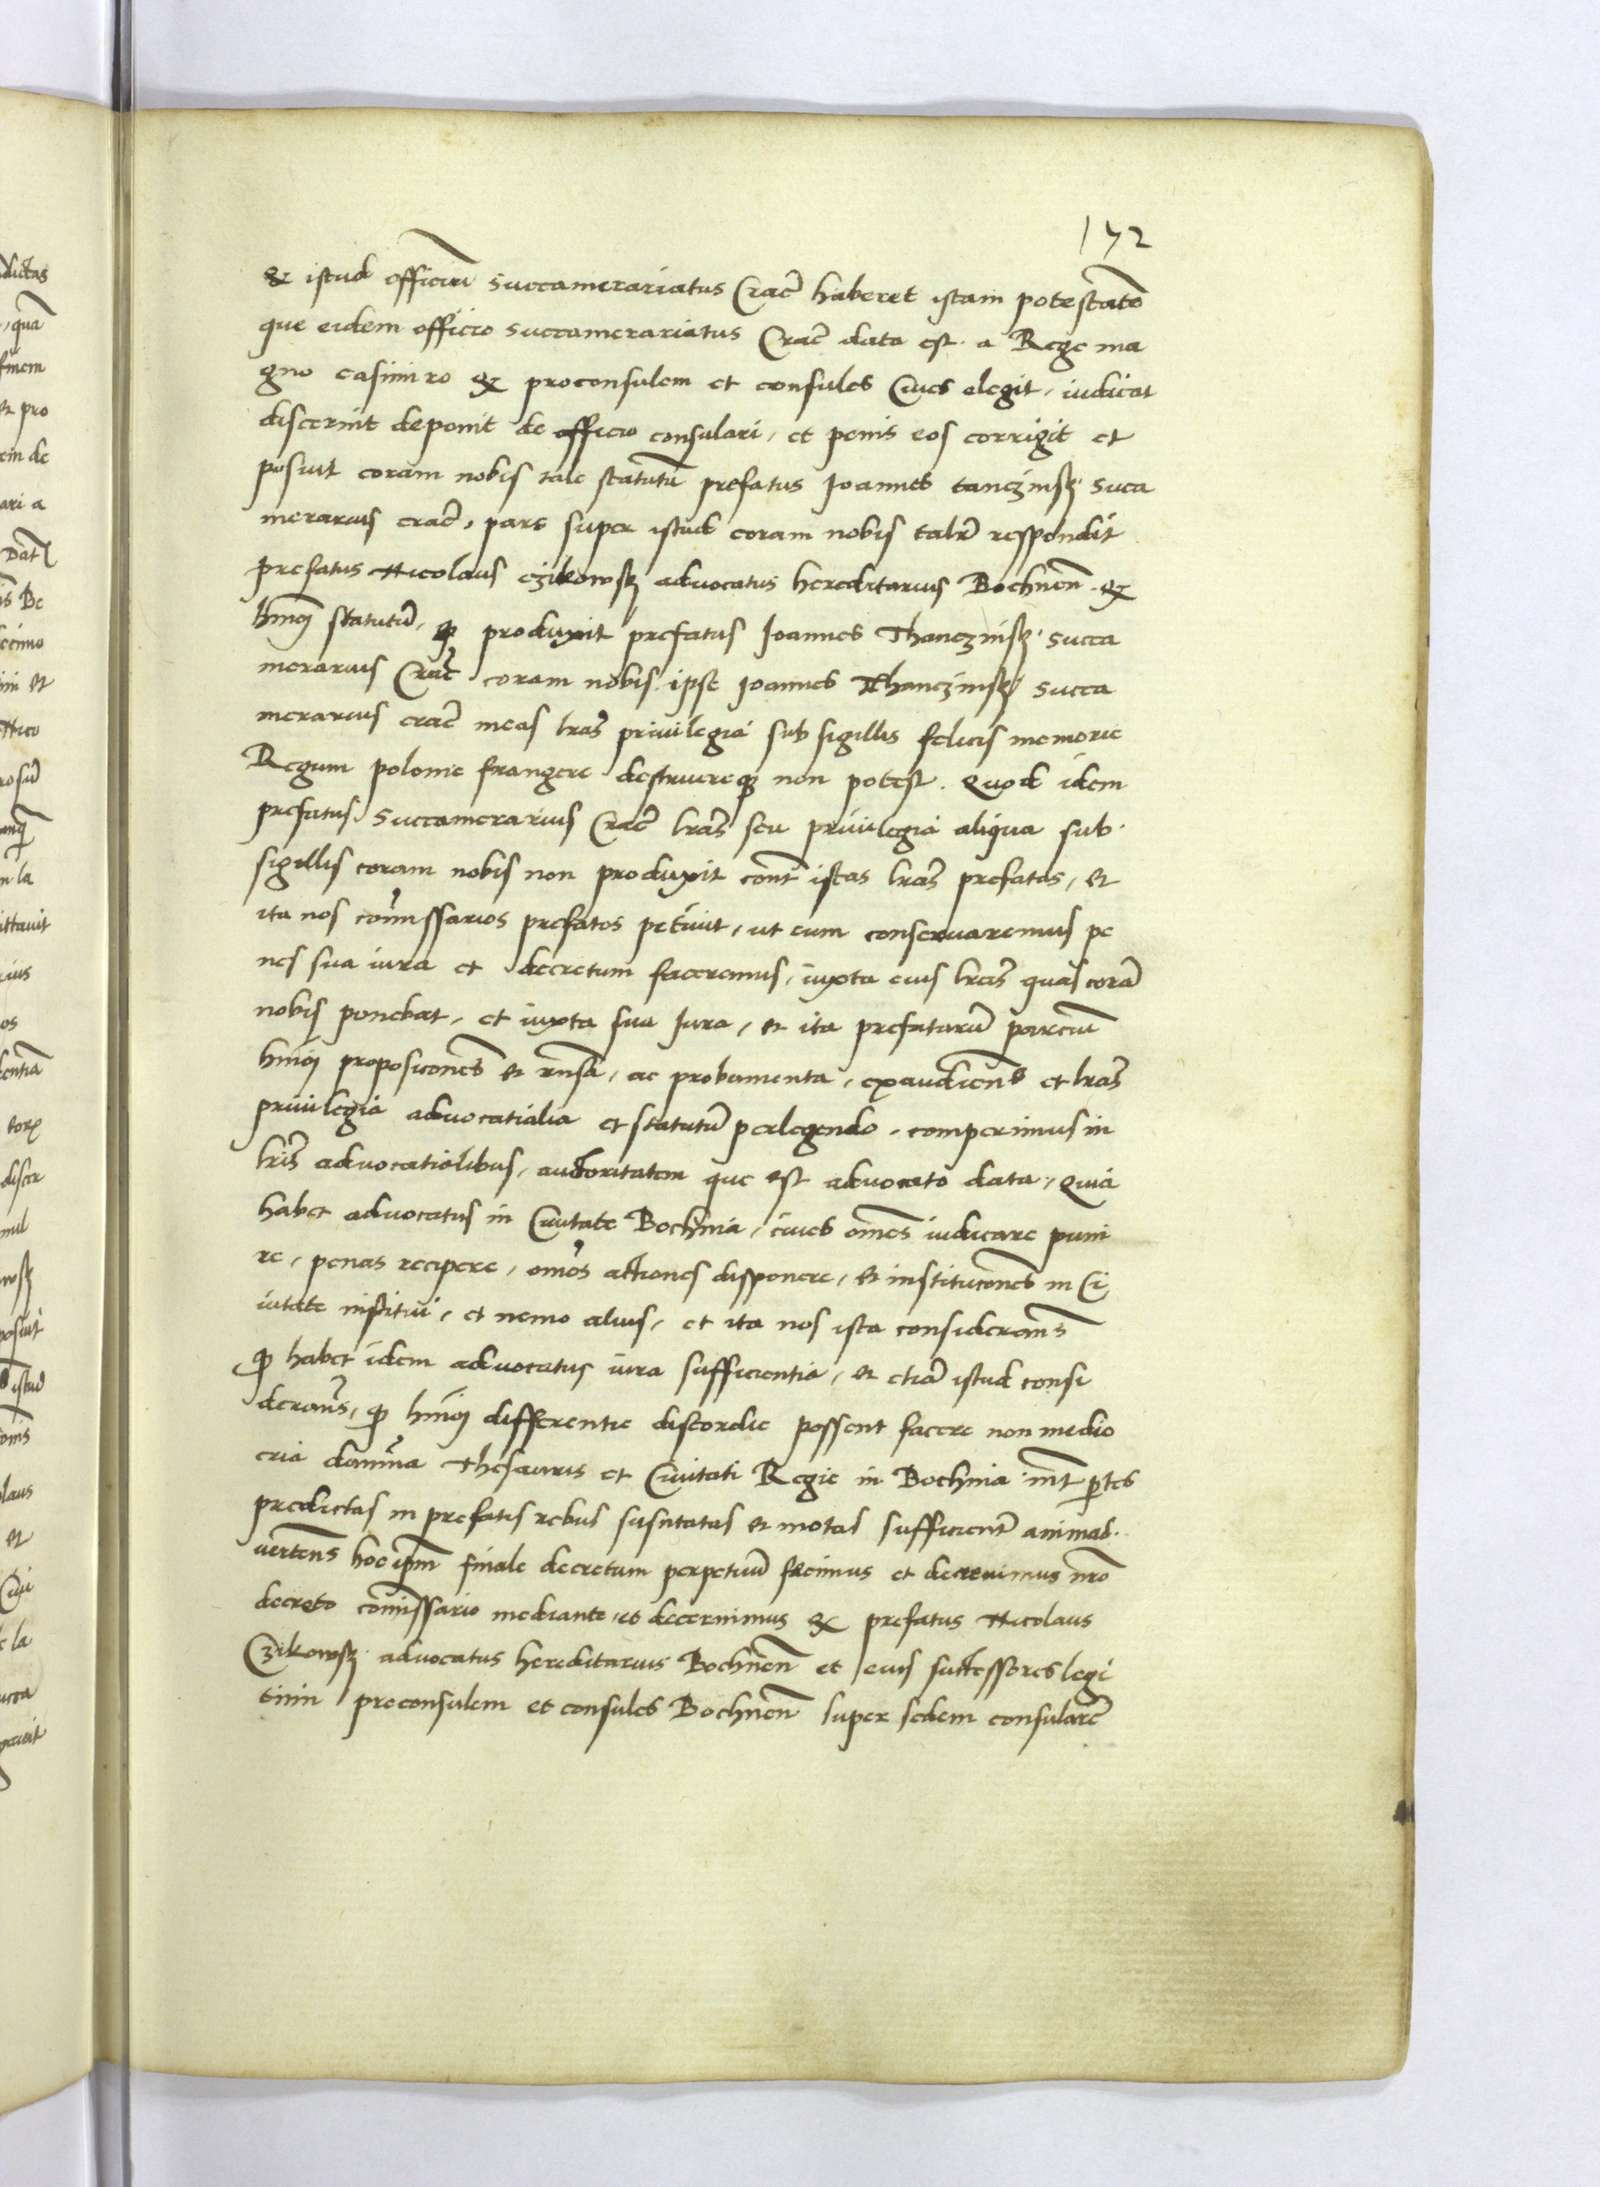 172
& istud officiũ succamerariatus Crac̃ haberet istam potestatẽ
que eidem officio succamerariatus Crac̃ data est. a Rege ma
gno casimiro & proconsulem et consules Ciues elegit, iudicat
discernit deponit de officio consulari, et penis eos corrigit et
posuit coram nobis tale statutũ prefatus Ioannes tanczinsky suca
merarius crac̃, pars super istud coram nobis talir̃ respondit
prefatus Nicolaus czikowsky advocatus hereditarius Bochnen̄. &
hmõi statutũ, q̃ produxit prefatus Ioannes Thanczinsky succa
merarius Crac̃ coram nobis. ipse Ioannes Thanczinsky succa
merarius crac̃ meas lrãs priuilegia sub sigillis felicis memorie
Regum polonie frangere destruereq; non potest. Quod idem
prefatus succamerarius Crac̃ lrãs seu priuilegia aliqua sub
sigillis coram nobis non produxit cont̃ istas lrãs prefatas, et
ita nos com̃issarios prefatos petiuit, ut eum conseruaremus pe
nes sua iura et decretum faceremus, iuxta eius lrãs quas corã
nobis ponebat, et iuxta sua Iura, et ita prefatarũ parciũ
hmõi proposicõnes et rñsa, ac probamenta, exaudiens et lrãs
priuilegia advocatialia et statutũ perlegendo. comperimus in
lrĩs advocatialibus, auctoritatem que est advocato data, Quia
habet advocatus in Ciuitate Bochnia, ciues om̃es iudicare puni
re, penas recipere, om̃es actiones disponere, et institucõnes in Ci
iutate institui, et nemo alius, et ita nos ista considerans
q̃ habet idem advocatus iura sufficientia, et etiã istud consi
derans, q̃ hmõi differentie discordie possent facere non medio
cria dam̃na Thesauris et Ciuitati Regie in Bochnia int̃ ptes
predictas in prefatis rebus suscitatas et motas sufficient̃ animad.
uertens hoc ip̃m finale decretum perpetuũ fecimus et decreuimus nr̃o
decreto com̃issario mediante, et decernimus & prefatus Nicolaus
Czikowsky advocatus hereditarius Bochnen̄ et eius successores legi
timi preconsulem et consules Bochnen̄ super sedem consularẽ